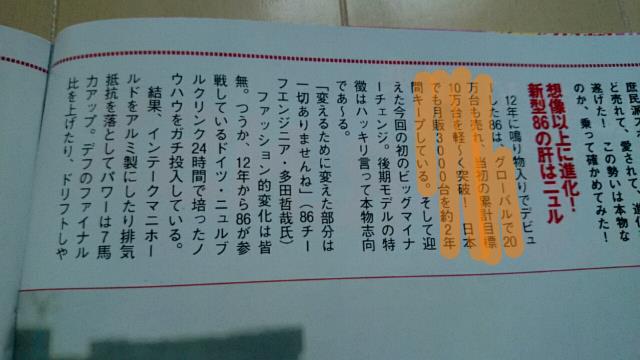 庶民派ス
ど売れて、愛されて、進化
遂げた！ この勢いは本物な
のか、乗って確かめてみた！
想像以上に進化！
新型86の肝はニュル
12年に鳴り物入りでデビュ
ーした86は、グローバルで20
万台も売れ、当初の累計目標
10万台を軽〜く突破！ 日本
でも月販3000台を約2年
間キープしている。そして迎
えた今回の初のビッグマイナ
ーチェンジ。後期モデルの特
徴はハッキリ言って本物志向
であ〜る。
「変えるために変えた部分は
一切ありませんね」（86チー
フエンジニア・多田哲哉氏）
ファッション的変化は皆
無。つうか、12年から86が参
戦しているドイツ・ニュルブ
ルクリンク24時間で培ったノ
ウハウをガチ投入している。
結果、インテークマニホー
ルドをアルミ製にしたり排気
抵抗を落としてパワーは7馬
力アップ。デフのファイナル
比を上げたり、ドリフトしや